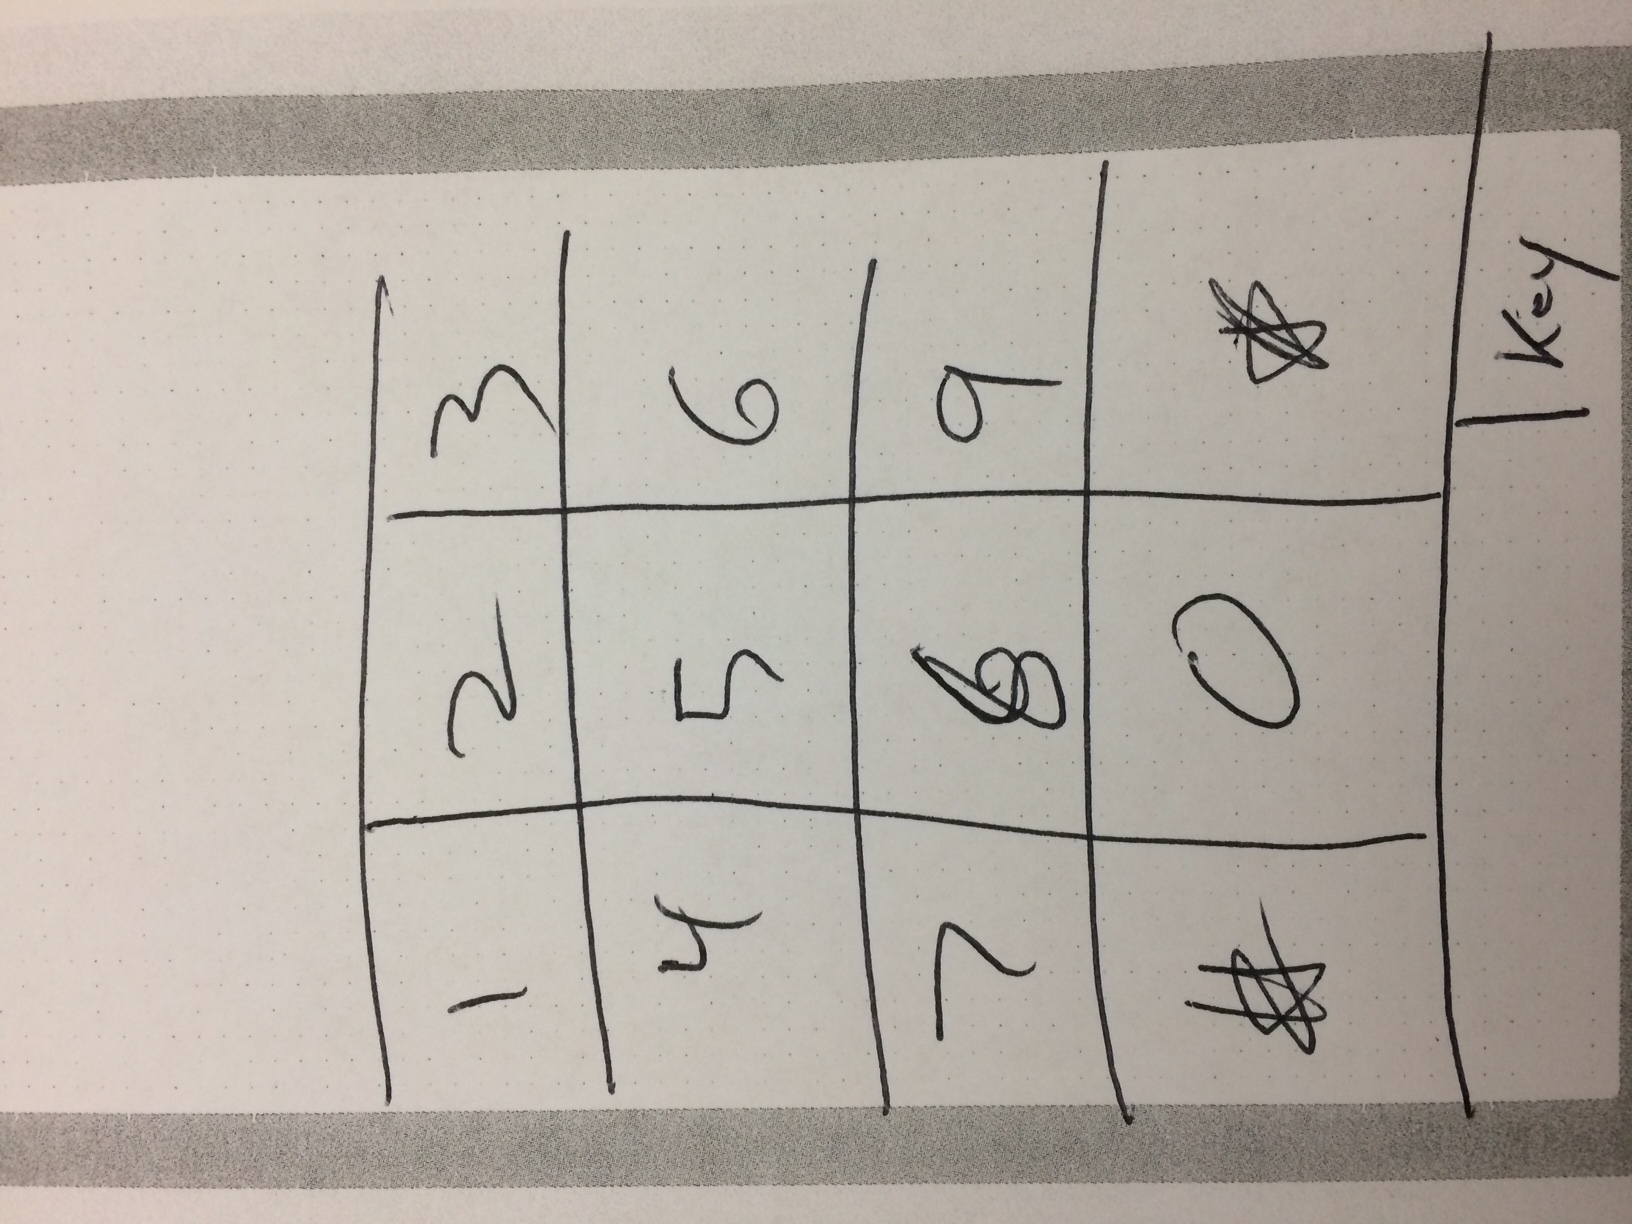 1 2 3
4 5 6
7 8 9
# 0 *
Key